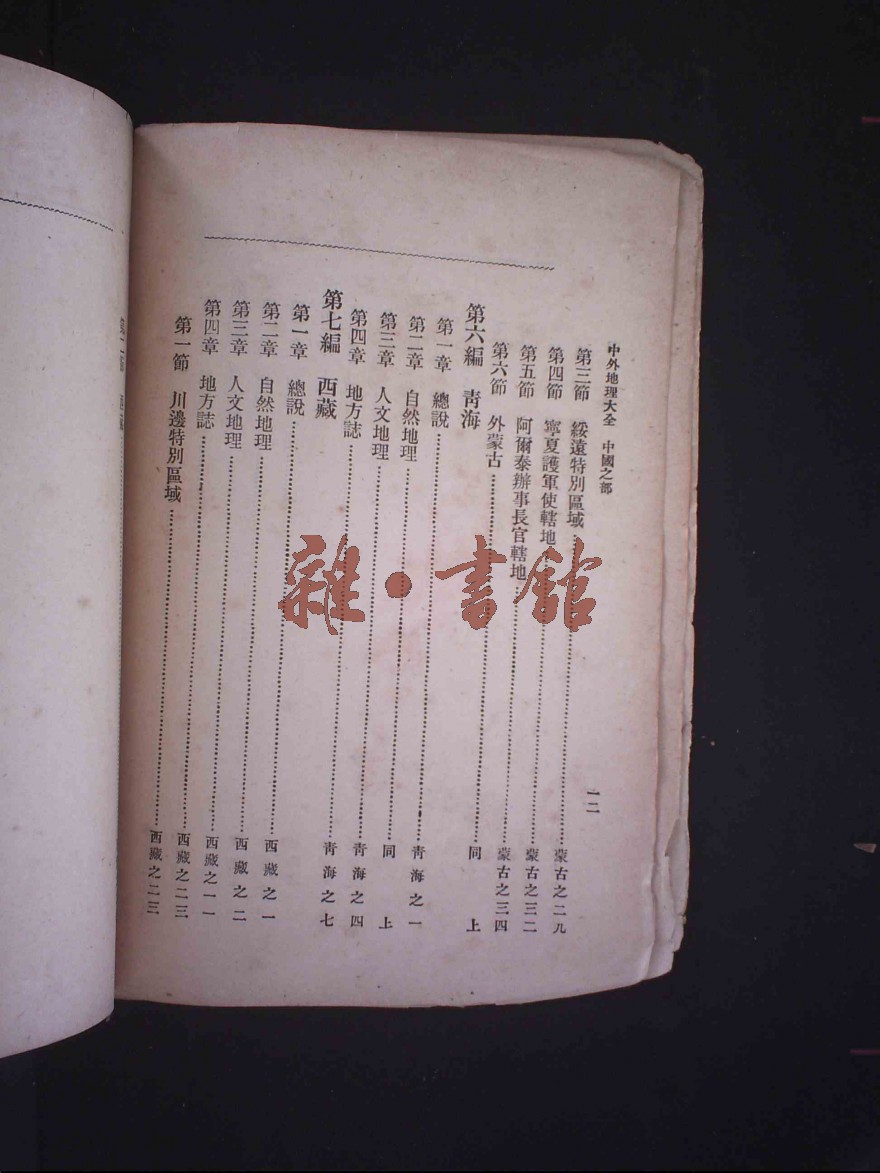 中外地理大全 中國之部 一二
第三節 綏遠特別區域……蒙古之二九
第四節 寧夏護軍使轄地……蒙古之三二
第五節 阿爾泰辦事長官轄地……蒙古之三四
第六節 外蒙古……同上
第六編 靑海
第一章 總說……靑海之一
第二章 自然地理……同上
第三章 人文地理……靑海之四
第四章 地方誌……靑海之七
第七編 西藏
第一章 總說……西藏之一
第二章 自然地理……西藏之二
第三章 人文地理……西藏之一一
第四章 地方誌……西藏之二三
第一節 川邊特別區域……西藏之二三
雜·書館